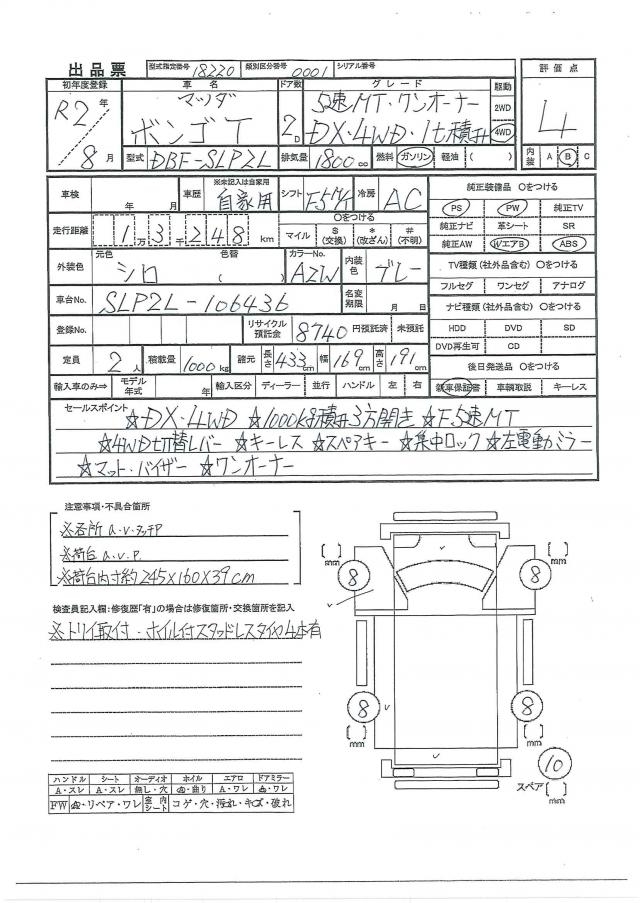 出品票 型式指定番号 18220 類別区分番号 0001 シリアル番号
初年度登録 車名 ドア数 グレード 駆動 評価点
R2年 マツダ 5速MT・ワンオーナー 2WD
8月 ボンゴT 2D DX・4WD・1t積み 4WD 4
型式 DBF-SLP2L 排気量 1800cc 燃料 ガソリン 軽油 ( ) 内装 A B C
車検 年 月 車歴 ※未記入は自家用 自家用 シフト F5M/T 冷房 AC 純正装備品 〇をつける
PS PW 純正TV
走行距離 1万3千248km 〇をつける 純正ナビ 革シート SR
マイル $(交換) *(改ざん) #(不明) 純正AW WエアB ABS
外装色 元色 シロ 色替 ( ) カラーNo. AZW 内装色 グレー TV種類(社外品含む) 〇をつける
フルセグ ワンセグ アナログ
車台No. SLP2L-106436 名変期限 月 日 ナビ種類(社外品含む) 〇をつける
登録No. リサイクル預託金 8740 円預託済 未預託 HDD DVD SD
DVD再生可 CD
定員 2人 積載量 1000kg 諸元 長さ 433cm 幅 169cm 高さ 191cm 後日発送品 〇をつける
輸入車のみ⇒ モデル年式 年 輸入区分 ディーラー 並行 ハンドル 左 右 新車保証書 車輌取説 キーレス
セールスポイント ☆DX・4WD ☆1000kg積み3方開き ☆F5速MT
☆4WD切替レバー ☆キーレス ☆スペアキー ☆集中ロック ☆左電動ミラー
☆マット・バイザー ☆ワンオーナー
注意事項・不具合箇所
※各所 a.v.タッチP
※荷台 a.v.P.
※荷台内寸約245×160×39cm
検査員記入欄:修復歴「有」の場合は修復箇所・交換箇所を記入
※トリイ取付・ホイル付スタッドレスタイヤ4本有
[ ]mm 8 8 [ ]mm
8 8
[ ]mm [ ]mm
10
スペア [ ]mm
ハンドル シート オーディオ ホイル エアロ ドアミラー
A・スレ A・スレ 無し・穴 曲り A・ワレ ワレ
FW リペア・ワレ 室内シート コゲ・穴・汚れ・キズ・破れ